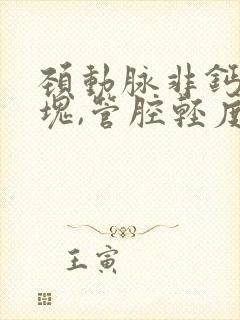 頚動脉非鈣
塊,管腔輕度
王寅